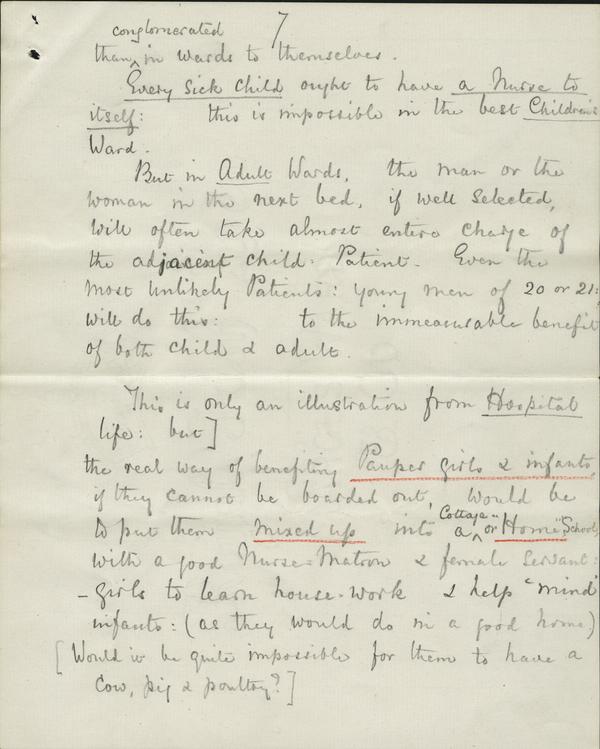 7
conglomerated
than ^ in wards to themselves.
Every sick child ought to have a Nurse to
itself: this is impossible in the best Children's
Ward.
But in Adult Wards, the man or the
woman in the next bed, if well selected,
will often take almost entire charge of
the adjacent child-Patient. Even the
most unlikely Patients: young men of 20 or 21:
will do this: to the immeasurable benefit
of both child & adult.
This is only an illustration from Hospital
life: but]
the real way of benefiting Pauper girls & infants,
if they cannot be boarded out, would be
to put them mixed up into a ^ Cottage- or "Home" Schools
with a good Nurse-Matron & female servant:
- girls to learn house-work & help "mind"
infants: (as they would do in a good home)
[Would it be quite impossible for them to have a
cow, pig & poultry?]